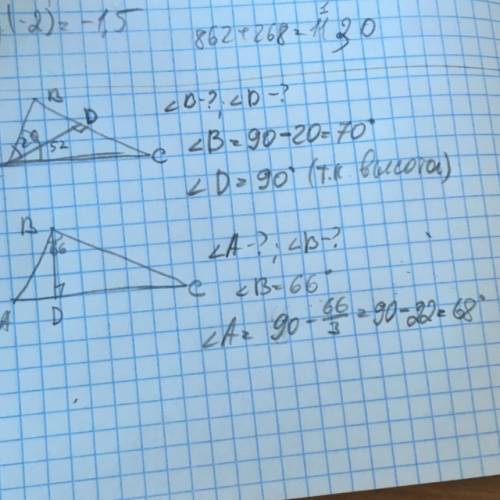 (-2) = -1,5
862 + 268 = 1130
B
D
20
52
C
∠D-?; ∠D-?
∠B = 90 - 20 = 70°
∠D = 90° (т.к. высота)
B
66
A
D
C
∠A-?; ∠B-?
∠B = 66°
∠A = 90 - 66/3 = 90 - 22 = 68°